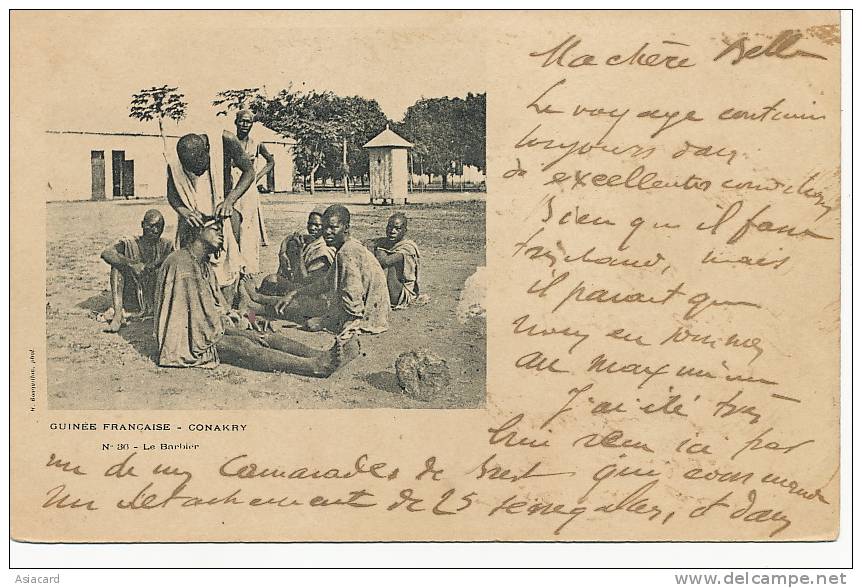 Ma chère Bella
Le voyage continue
toujours dans
de excellentes conditions
Bien qu'il fasse
très chaud, mais
il parait que
nous en sommes
au maximum
J'ai été très
bien reçu ici par
un de mes Camarades de Brest qui commande
un détachement de 25 sénégalais, et dans
H. Bouquillon, phot.
GUINÉE FRANÇAISE - CONAKRY
N° 36 - Le Barbier
Asiacard
http://www.delcampe.net